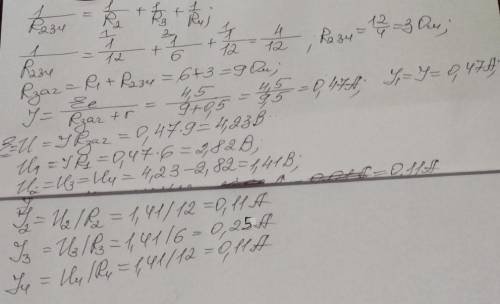 1/R₂₃₄ = 1/R₂ + 1/R₃ + 1/R₄;
1/R₂₃₄ = 1/12 + 1/6 + 1/12 = 4/12, R₂₃₄ = 12/4 = 3 Ом;
Rзаг = R₁ + R₂₃₄ = 6+3 = 9 Ом;
I = ℰ/(Rзаг + r) = 4,5/(9+0,5) = 4,5/9,5 = 0,47A; I₁ = I = 0,47A.
U = I Rзаг = 0,47·9 = 4,23B.
U₁ = IR₁ = 0,47·6 = 2,82B;
U₂ = U₃ = U₄ = 4,23 – 2,82 = 1,41B;
= 0,11A
I₂ = U₂/R₂ = 1,41/12 = 0,11A
I₃ = U₃/R₃ = 1,41/6 = 0,25A
I₄ = U₄/R₄ = 1,41/12 = 0,11A